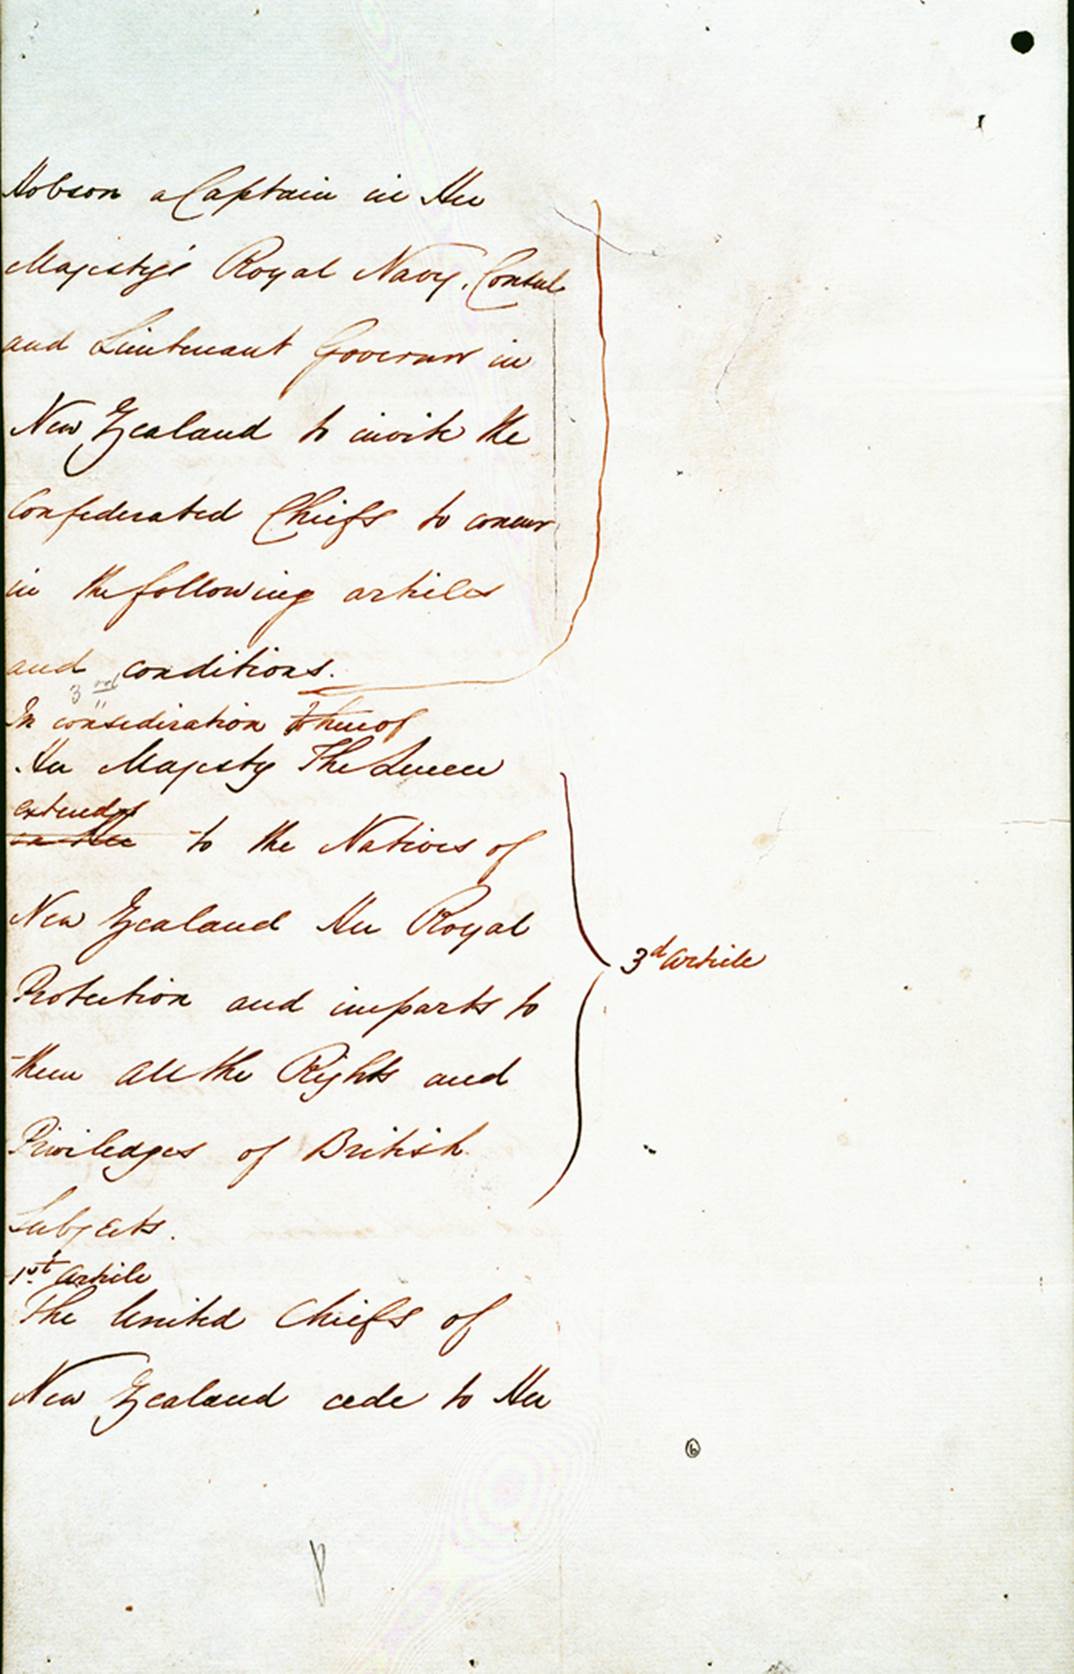 Hobson a Captain in Her
Majesty's Royal Navy. Consul
and Lieutenant Governor in
New Zealand to invite the
Confederated Chiefs to concur
in the following articles
and conditions.
3rd
In consideration thereof
Her Majesty The Queen
extends
to the Natives of
New Zealand Her Royal
Protection and imparts to
them all the Rights and
Priviledges of British
Subjects.
3d Article
1st Article
The United Chiefs of
New Zealand cede to Her
6